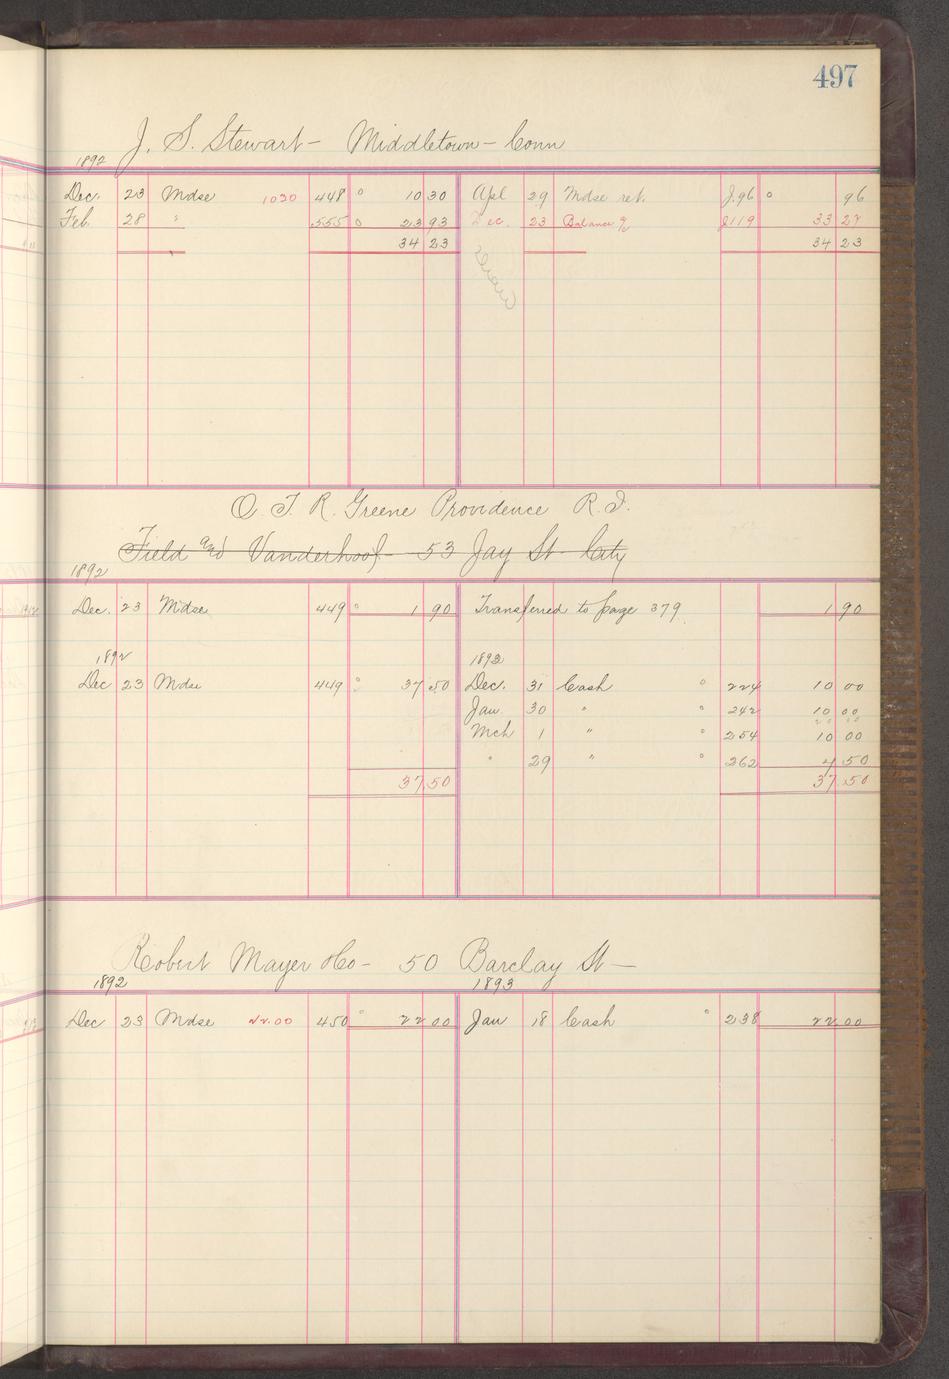 497
J. S. Stewart - Middletown - Conn
1892
Dec. 23 Mdse 1030 448 10 30 Apl 29 Mdse ret. J.96 96
Feb. 28 " 555 23 93 Dec. 23 Balance J119 33 27
34 23 34 23
O. T. R. Greene Providence R. I.
Field and Vanderhoof - 53 Jay St City
1892
Dec. 23 Mdse 449 " 1 90 Transferred to page 379 1 90
1892 1892
Dec 23 Mdse 449 " 37 50 Dec. 31 Cash " 224 10 00
Jan 30 " " 242 10 00
Mch 1 " " 254 10 00
" 29 " " 262 50
37 50 37 50
Robert Mayer & Co - 50 Barclay St -
1892 1893
Dec 23 Mdse 22.00 450 " 22 00 Jan 18 Cash " 238 22 00